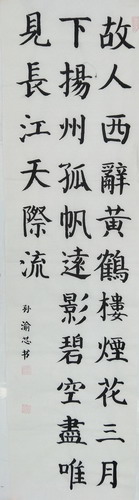 故人西辭黃鶴樓煙花三月
下揚州孤帆遠影碧空盡唯
見長江天際流
孙渝芯书